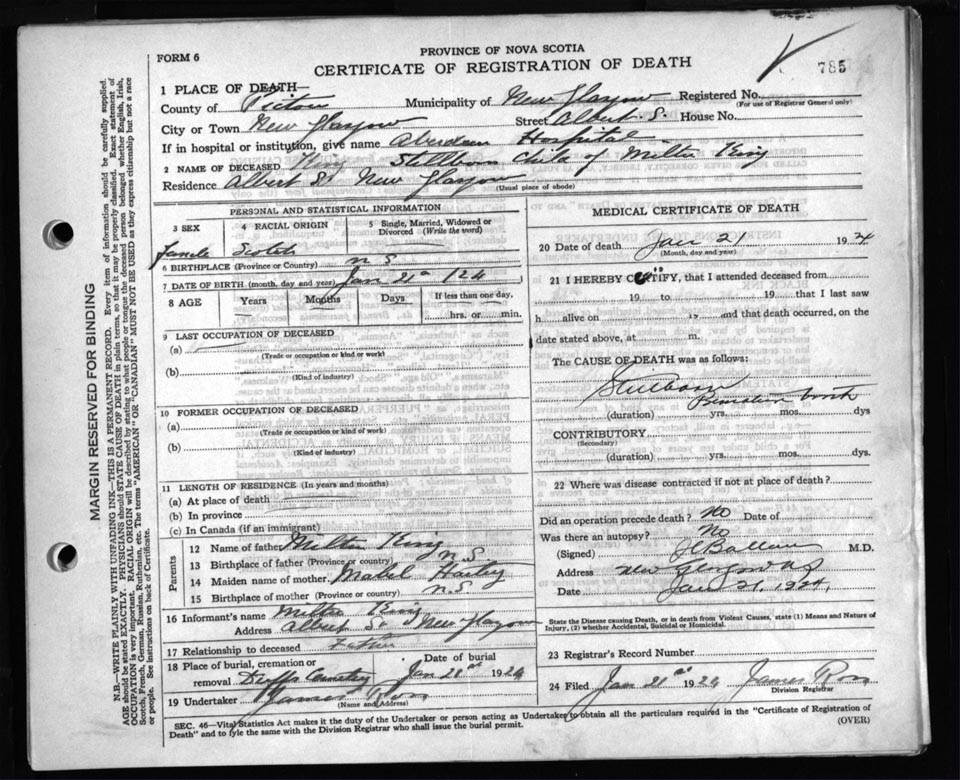 FORM 6
PROVINCE OF NOVA SCOTIA
CERTIFICATE OF REGISTRATION OF DEATH
785
1 PLACE OF DEATH—
County of Pictou Municipality of New Glasgow Registered No.
(For use of Registrar General only)
City or Town New Glasgow Street Albert S. House No.
If in hospital or institution, give name Aberdeen Hospital
2 NAME OF DECEASED King Stillborn Child of Milton King
Residence Albert St New Glasgow
(Usual place of abode)
PERSONAL AND STATISTICAL INFORMATION
3 SEX 4 RACIAL ORIGIN 5 Single, Married, Widowed or Divorced (Write the word)
Scotch
6 BIRTHPLACE (Province or Country) N S
7 DATE OF BIRTH (month, day and year) Jan 21st 124
8 AGE Years Months Days If less than one day,
hrs. or min.
9 LAST OCCUPATION OF DECEASED
(a)
(Trade or occupation or kind or work)
(b)
(Kind of industry)
10 FORMER OCCUPATION OF DECEASED
(a)
(Trade or occupation or kind of work)
(b)
(Kind of industry)
11 LENGTH OF RESIDENCE (In years and months)
(a) At place of death
(b) In province
(c) In Canada (if an immigrant)
Parents
12 Name of father Milton King
13 Birthplace of father (Province or country) N S
14 Maiden name of mother Mabel
15 Birthplace of mother (Province or country) N. S
16 Informant's name Milton King
Address Albert St New Glasgow
17 Relationship to deceased Father
18 Place of burial, cremation or removal Cemetery Date of burial Jan 21st 1924
19 Undertaker James Ross
(Name and Address)
MEDICAL CERTIFICATE OF DEATH
20 Date of death Jan 21 1924
(Month, day and year)
21 I HEREBY CERTIFY, that I attended deceased from
19 to 19 that I last saw
h alive on 19 and that death occurred, on the
date stated above, at m.
The CAUSE OF DEATH was as follows:
Stillborn
(duration) yrs. mos. dys
CONTRIBUTORY
(Secondary)
(duration) yrs. mos. dys.
22 Where was disease contracted if not at place of death?
Did an operation precede death? No Date of
Was there an autopsy? No
(Signed) M.D.
Address New Glasgow N S
Date Jan 21, 1924,
State the Disease causing Death, or in death from Violent Causes, state (1) Means and Nature of Injury, (2) whether Accidental, Suicidal or Homicidal.
23 Registrar's Record Number
24 Filed Jan 21st 1924 James Ross
Division Registrar
SEC. 46—Vital Statistics Act makes it the duty of the Undertaker or person acting as Undertaker to obtain all the particulars required in the "Certificate of Registration of
Death" and to fyle the same with the Division Registrar who shall issue the burial permit.
(OVER)
MARGIN RESERVED FOR BINDING
N.B.—WRITE PLAINLY WITH UNFADING INK—THIS IS A PERMANENT RECORD. Every item of information should be carefully supplied.
AGE should be stated EXACTLY. PHYSICIANS should STATE CAUSE OF DEATH in plain terms, so that it may be properly classified. Exact statement of
OCCUPATION is very important. RACIAL ORIGIN will be described by stating to what people or tongue the deceased person belonged whether English, Irish,
Scotch, French, German, Russian, Ruthenian, etc. The terms "AMERICAN" or "CANADIAN" MUST NOT BE USED as they express citizenship but not a race
or people. See instructions on back of Certificate.